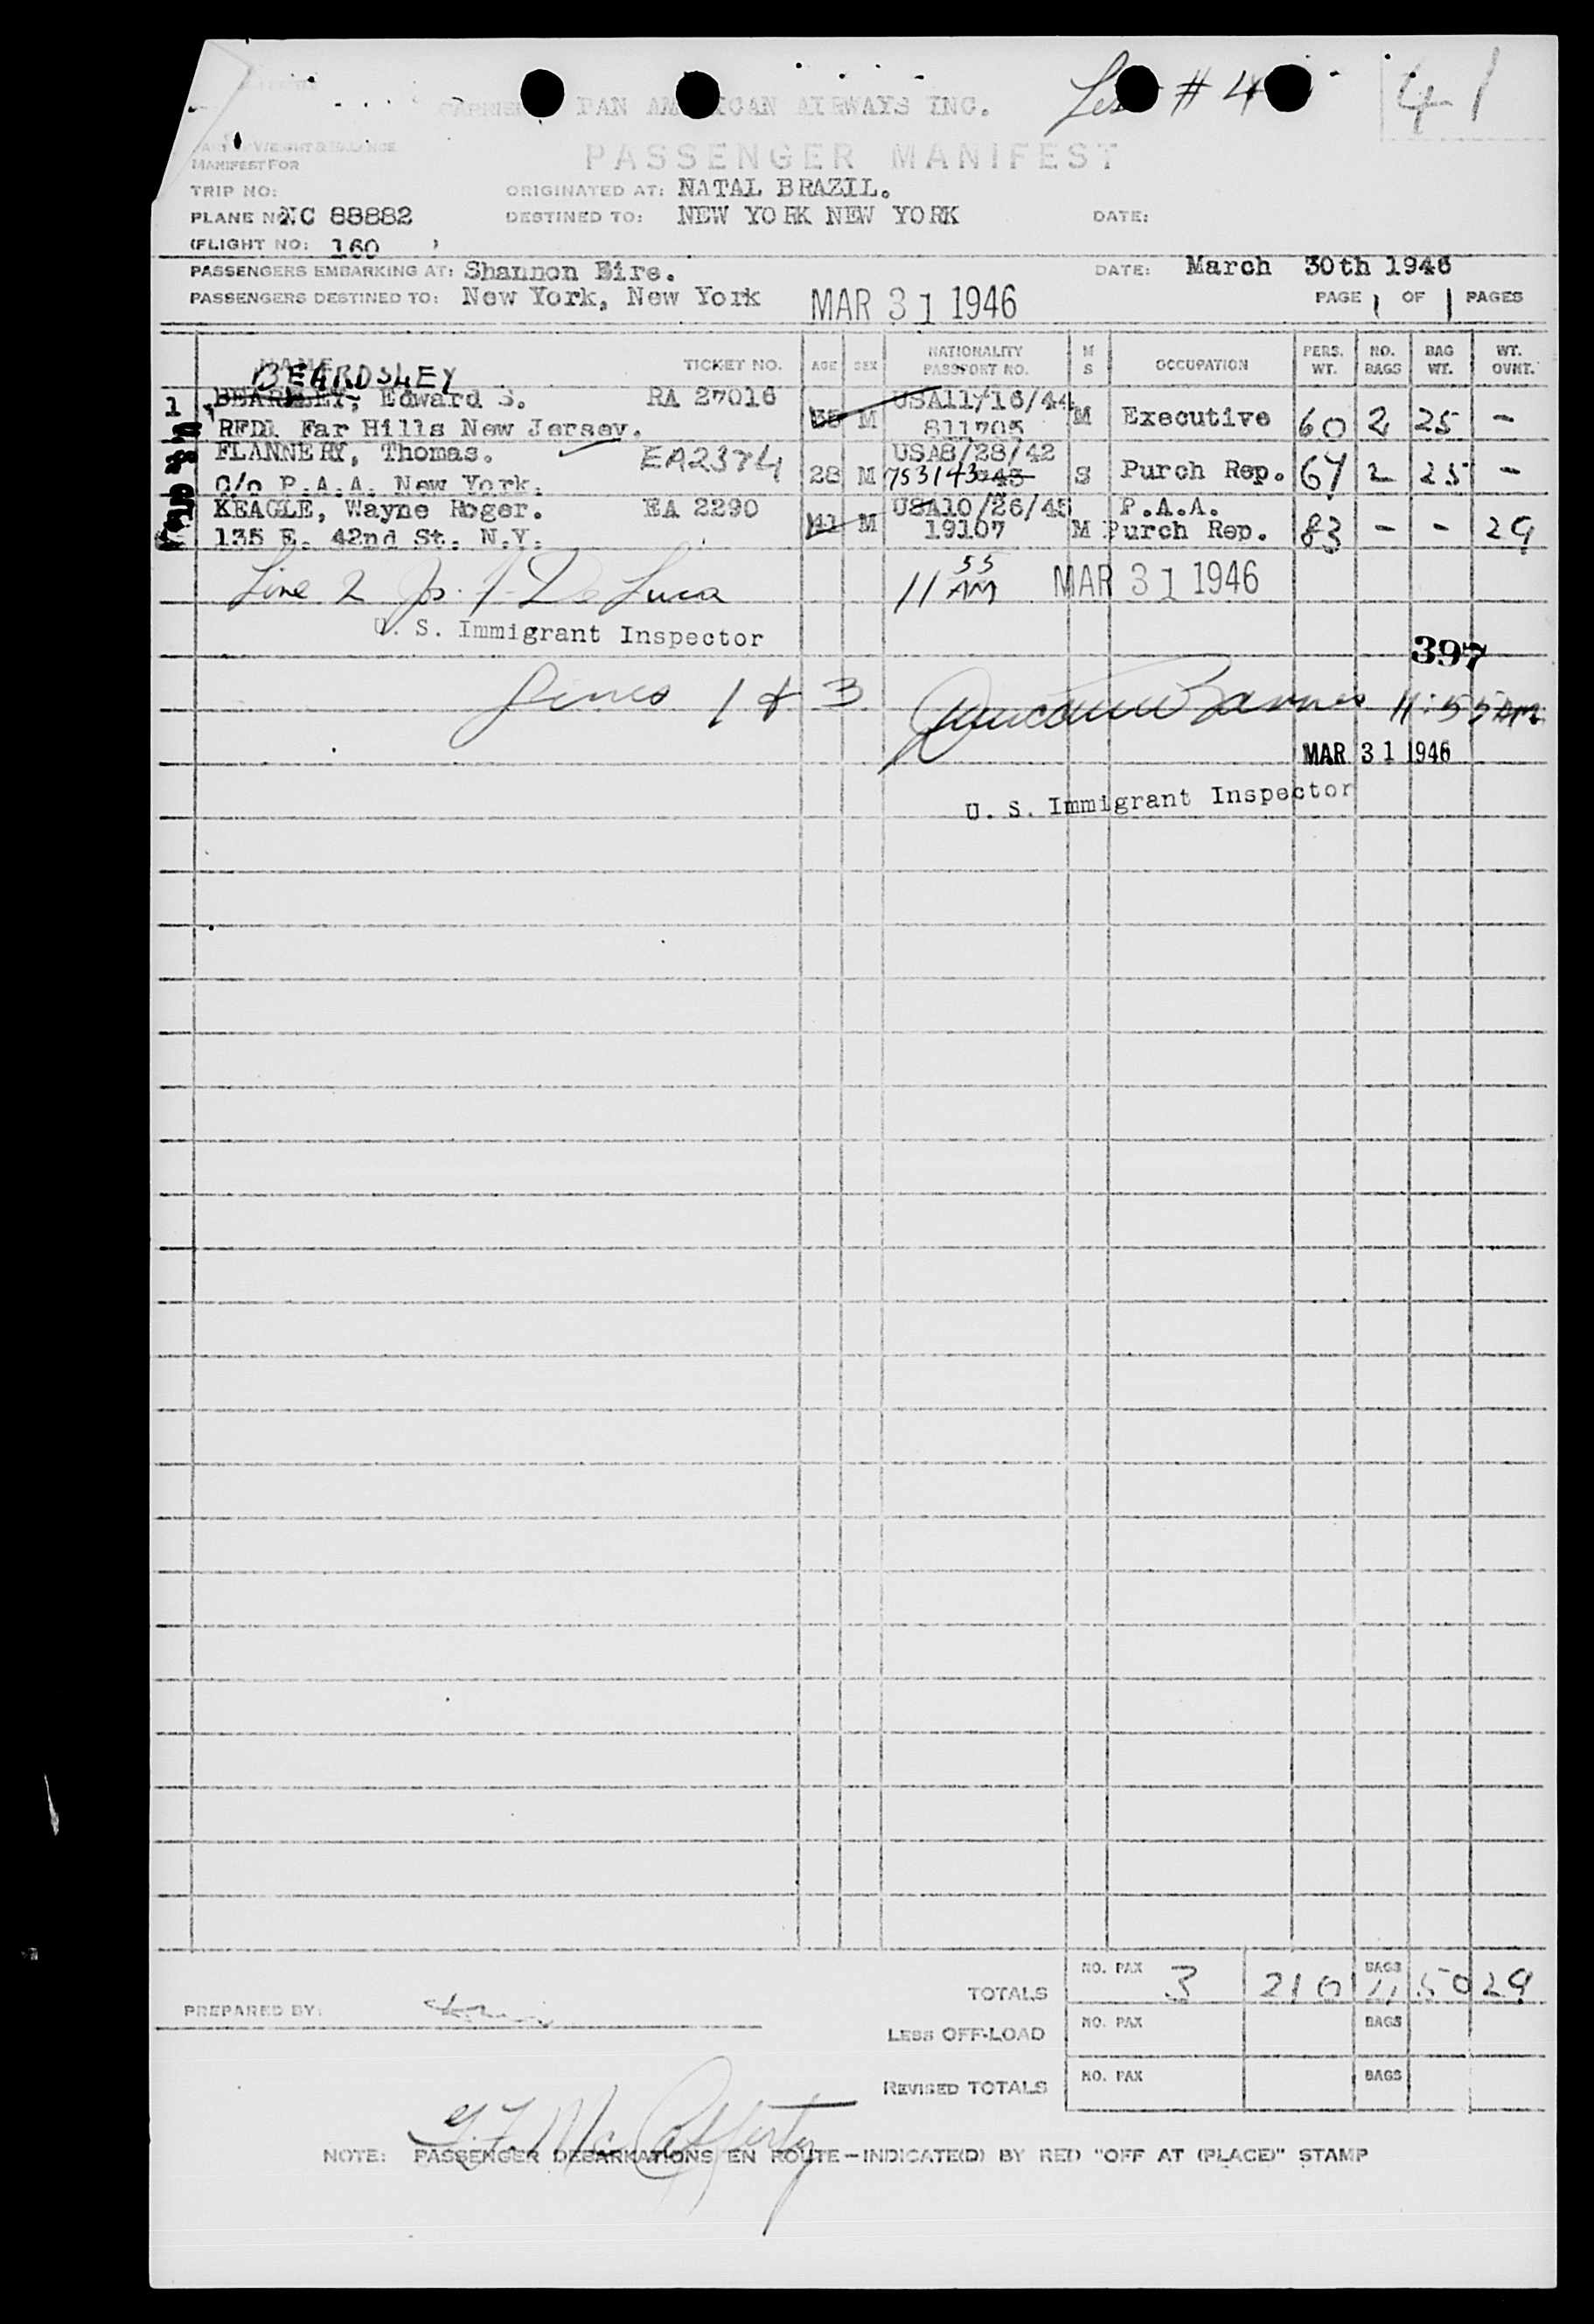 PAN AMERICAN AIRWAYS INC. # 4 41
PASSENGER MANIFEST
MANIFEST FOR
TRIP NO: ORIGINATED AT: NATAL BRAZIL.
PLANE NO NC 88882 DESTINED TO: NEW YORK NEW YORK DATE:
(FLIGHT NO: 160 )
PASSENGERS EMBARKING AT: Shannon Eire. DATE: March 30th 1946
PASSENGERS DESTINED TO: New York, New York MAR 31 1946 PAGE 1 OF 1 PAGES
NAME TICKET NO. AGE SEX NATIONALITY PASSPORT NO. M S OCCUPATION PERS. WT. NO. BAGS BAG WT. WT. OVNT.
BEARDSLEY
1 Edward S. RA 27016 M USA11/16/44 M Executive 60 2 25 -
RFD1 Far Hills New Jersey. 811705
FLANNERY, Thomas. EA2374 28 M USA8/28/42 S Purch Rep. 67 2 25 -
C/o P.A.A. New York. 753143
KEAGLE, Wayne Roger. EA 2290 41 M USA10/26/45 M P.A.A. 83 - - 29
135 E. 42nd St. N.Y. 19107 Purch Rep.
Line 2 Jos. F. De Luca 11 55 AM MAR 31 1946
U. S. Immigrant Inspector
397
Lines 1 & 3 Barnes 11:55 AM
MAR 31 1946
U. S. Immigrant Inspector
TOTALS NO. PAX 3 210 BAGS 4 50 29
PREPARED BY:
LESS OFF-LOAD NO. PAX BAGS
REVISED TOTALS NO. PAX BAGS
McCafferty
NOTE: PASSENGER DEBARKATIONS EN ROUTE—INDICATE(D) BY RED "OFF AT (PLACE)" STAMP